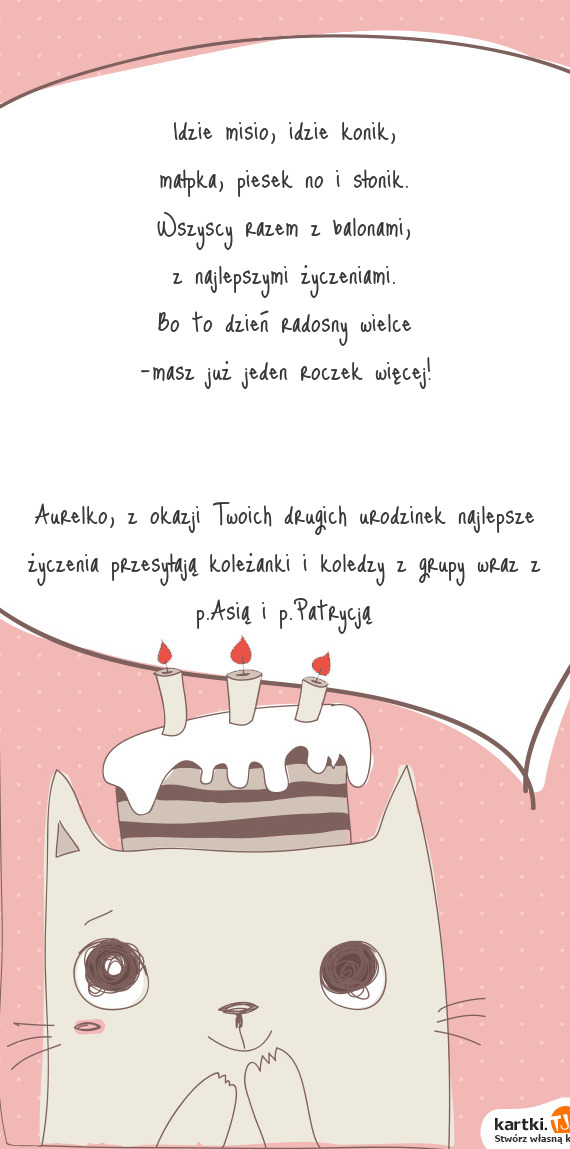 Idzie misio, idzie konik,
małpka, piesek no i słonik.
Wszyscy razem z balonami,
z najlepszymi życzeniami.
Bo to dzień radosny wielce
-masz już jeden roczek więcej!
Aurelko, z okazji Twoich drugich urodzinek najlepsze
życzenia przesyłają koleżanki i koledzy z grupy wraz z
p.Asią i p.Patrycją
kartki.TJ
Stwórz własną k